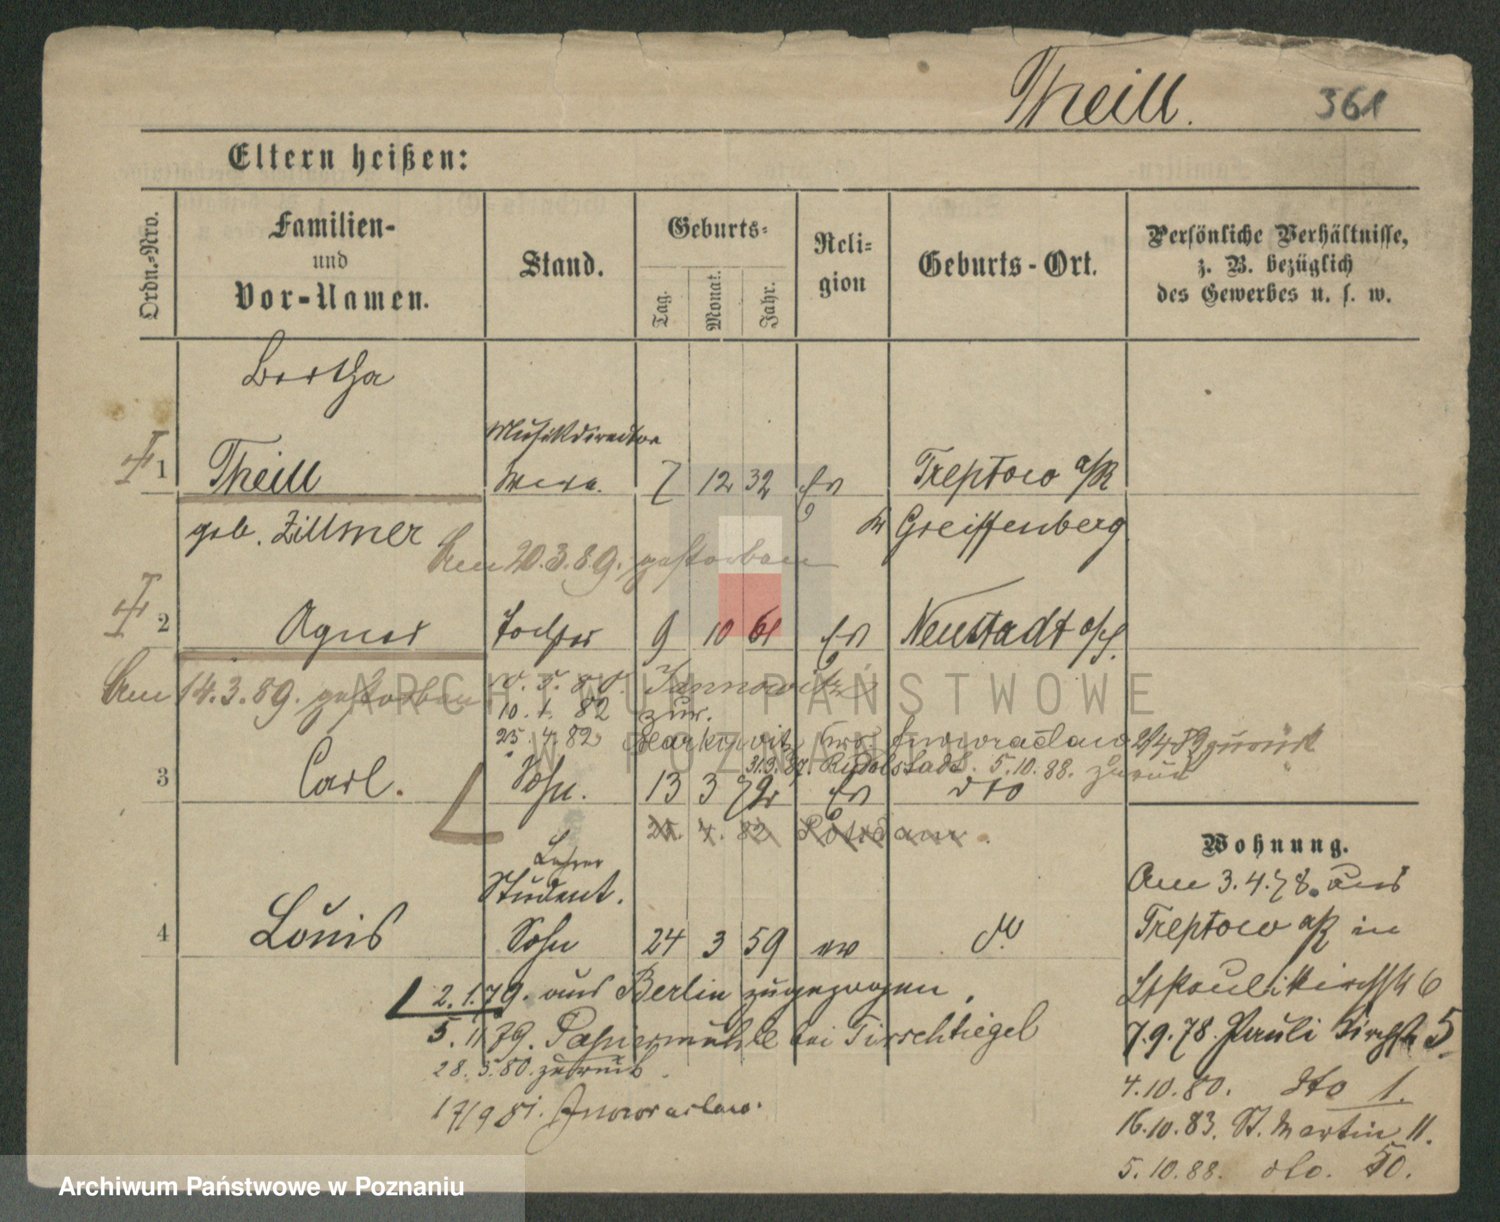 Theill. 361
Eltern heißen:
Ordn.-Nro.
Familien-
und
Vor-Namen.
Stand.
Geburts-
Tag.
Monat.
Jahr.
Reli-
gion
Geburts-Ort.
Persönliche Verhältnisse,
z. B. bezüglich
des Gewerbes u. s. w.
Bertha
Musikdirector
1 Theill Wwe. 7 12 32 Ev Treptow a/R
geb. Zillmer Kr Greiffenberg
Am 20.3.89. gestorben
2 Agnes Tochter 9 10 61 Ev Neustadt
Am 14.3.89. gestorben
Jannowitz
10. 1. 82 zur.
25. 4. 82 Markowitz Inowraclaw zurück
31.3.87. Rudolstadt. 5.10.88. zurück
3 Carl. Sohn. 13 3 72 Ev dto
25. 4. 82 Potsdam.
Wohnung.
Lehrer
Student.
4 Louis Sohn 24 3 59 ev do
Am 3.4.78. aus
Treptow a/R in
St Paulikirchstr 6
7.9.78. Pauli Kirchstr 5.
4.10.80. dto 1.
16.10.83. St. Martin 11.
5.10.88. dto. 50.
2.1.79. aus Berlin zugezogen,
5.11.79. Papiermühle bei Tirschtiegel
28.5.80. zurück.
17/9 81. Inowraclaw.
ARCHIWUM PAŃSTWOWE
W POZNANIU
Archiwum Państwowe w Poznaniu